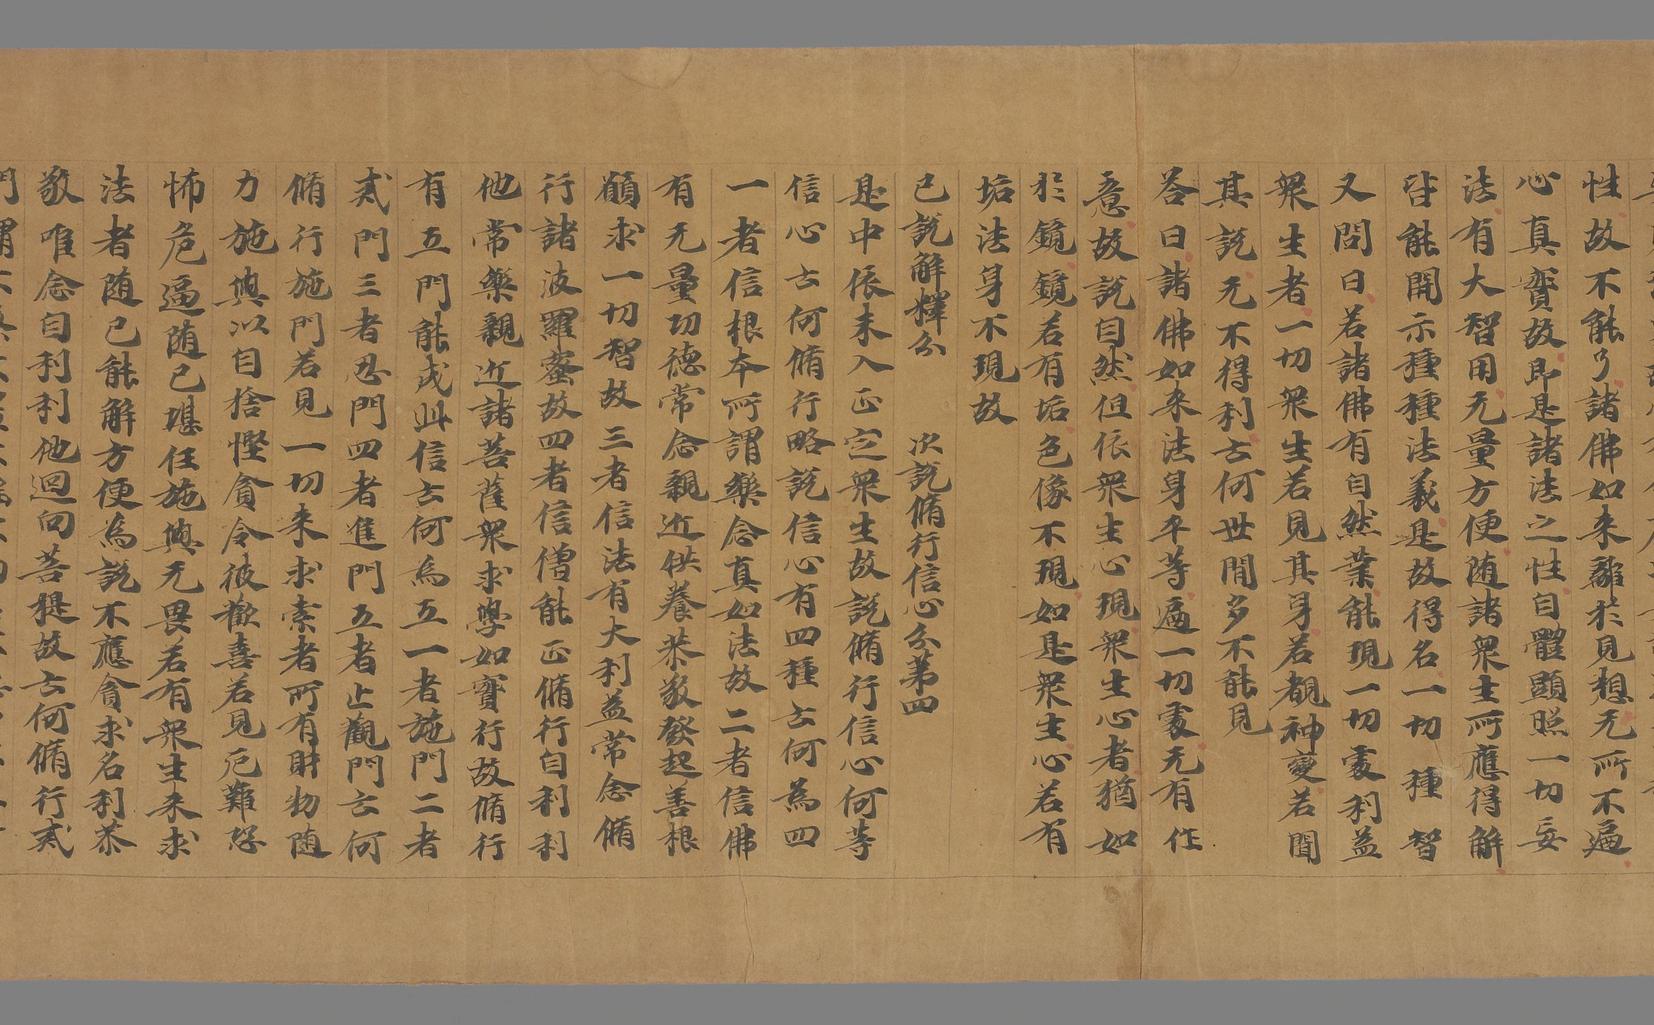 性故不能了諸佛如来離於見想无所不遍
心真實故即是諸法之性自體顯照一切妄
法有大智用无量方便随諸衆生所應得解
皆能開示種種法義是故得名一切種智
又問曰若諸佛有自然業能現一切處利益
衆生者一切衆生若見其身若覩神變若聞
其説无不得利云何世間多不能見
答曰諸佛如来法身平等遍一切處无有作
意故説自然但依衆生心現衆生心者猶如
於鏡鏡若有垢色像不現如是衆生心若有
垢法身不現故
已説解釋分　次説脩行信心分第四
是中依未入正定衆生故説脩行信心何等
信心云何脩行略説信心有四種云何為四
一者信根本所謂樂念真如法故二者信佛
有无量功德常念親近供養恭敬發起善根
願求一切智故三者信法有大利益常念脩
行諸波羅蜜故四者信僧能正脩行自利利
他常樂親近諸菩薩衆求學如實行故脩行
有五門能成此信云何為五一者施門二者
戒門三者忍門四者進門五者止觀門云何
脩行施門若見一切来求索者所有財物随
力施與以自捨慳貪令彼歡喜若見厄難恐
怖危逼随己堪任施與无畏若有衆生来求
法者随己能解方便為説不應貪求名利恭
敬唯念自利利他迴向菩提故云何脩行戒